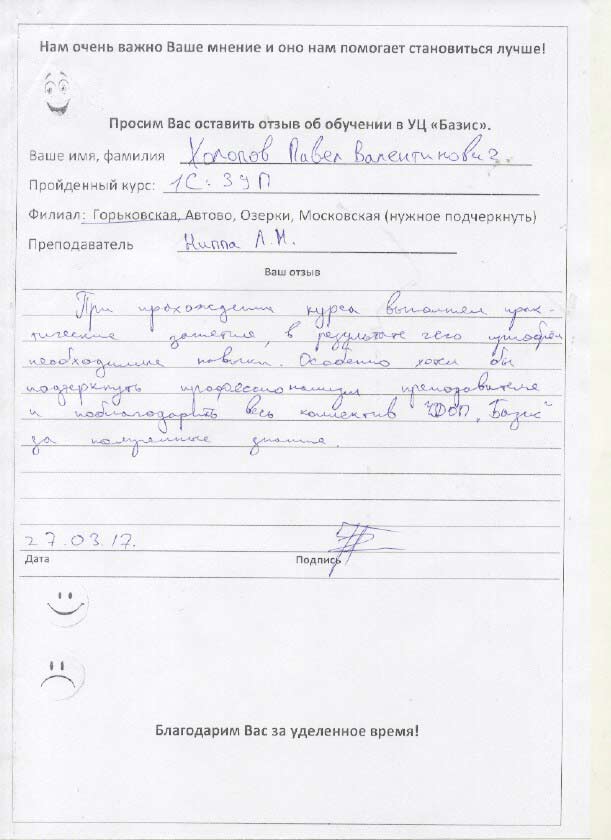 Нам очень важно Ваше мнение и оно нам помогает становиться лучше!
Просим Вас оставить отзыв об обучении в УЦ «Базис».
Ваше имя, фамилия Холопов Павел Валентинович.
Пройденный курс: 1С: ЗУП
Филиал: Горьковская, Автово, Озерки, Московская (нужное подчеркнуть)
Преподаватель А.Н.
Ваш отзыв
При прохождении курса выполнял прак-
тические занятия, в результате чего приобрёл
необходимые навыки. Особенно хотел бы
подчеркнуть профессионализм преподавателя
и поблагодарить весь коллектив "Базис"
за полученные знания.
27.03.17.
Дата Подпись
Благодарим Вас за уделенное время!